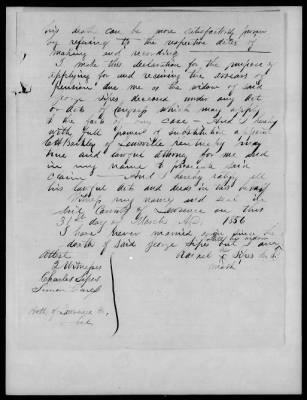 his death can be more satisfactorily proven
by refering to the respective dates of
making and recording
I make this declaration for the purpose of
applying for and receiving the arrears of
pension due me as the widow of said
George Sipes deceased under any act
or acts of Congress which may apply
to the facts of my case – And I hereby
with full power of substitution appoint
C H Barkley of Louisville Kentucky my
true and lawful attorney for me and
in my name to prosecute said
claim – And I hereby ratify all
his lawful acts and deeds in this behalf
Witness my name and seal in
County of Lawrence on this
31st day of A.D. 1850
I have never married since the
death of said George Sipes but I am
still his widow
Attest
Rachael X Sipes
her
mark
2 Witnesses
Charles Sipes
Simon
Both of Lawrence Co.
Ind